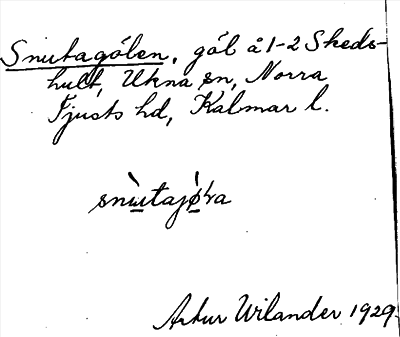 Snutagölen, göl å 1-2 Skeds-
hult, Ukna sn, Norra
Tjusts hd, Kalmar l.
Artur Wilander 1929.